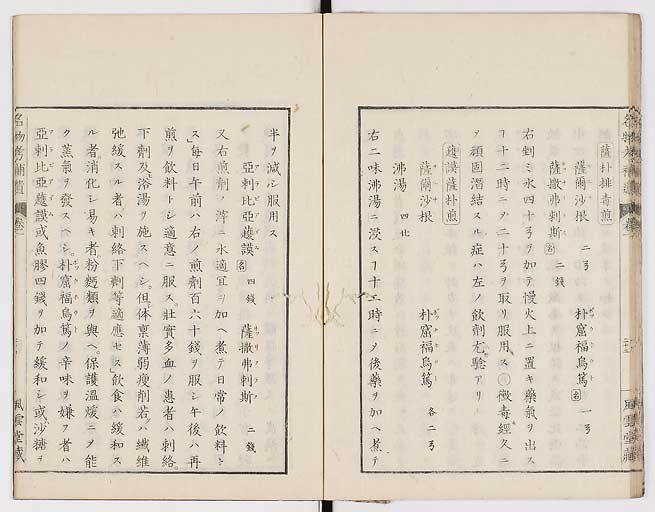 薩朴排毒煎
薩爾沙根 二弓 朴窟福烏篤 名 一弓
薩撒弗剌斯 名 二錢
右剉ミ水四十弓ヲ加テ慢火上ニ置キ藥氣ヲ出スヿ十二時ニメ二十弓ヲ取リ服用ス
黴毒經久ニメ頑固潜結スル症ハ左ノ飲劑尤驗アリ
薩朴煎
薩爾沙根 朴窟福烏篤 各二弓
沸湯 四
右二味沸湯ニ浸スヿ十二時ニメ後藥ヲ加ヘ煮テ
半ヲ減シ服用ス
亞剌比亞護謨 名 四錢 薩撒弗剌斯 二錢
又右煎劑ノ滓ニ水適宜ヲ加ヘ煮テ日常ノ飲料トス
毎日午前ハ右ノ煎劑百六十錢ヲ服シ午後ハ再
煎ヲ飲料トシ適意ニ服ス壯實多血ノ患者ハ刺絡
下劑及浴湯ヲ施スヘシ但體禀薄弱瘦削若ハ纎維
弛緩スル者ハ刺絡下劑等適應セス飲食ハ緩和ス
ル者消化シ易キ者粉麪類ヲ與ヘ保護温煖ニメ能
ク蒸氣ヲ發スヘシ朴窟福烏篤ノ辛味ヲ嫌フ者ハ
亞剌比亞護謨或魚膠四錢ヲ加テ緩和シ或沙糖ヲ
名物考補遺 卷
風雲堂藏